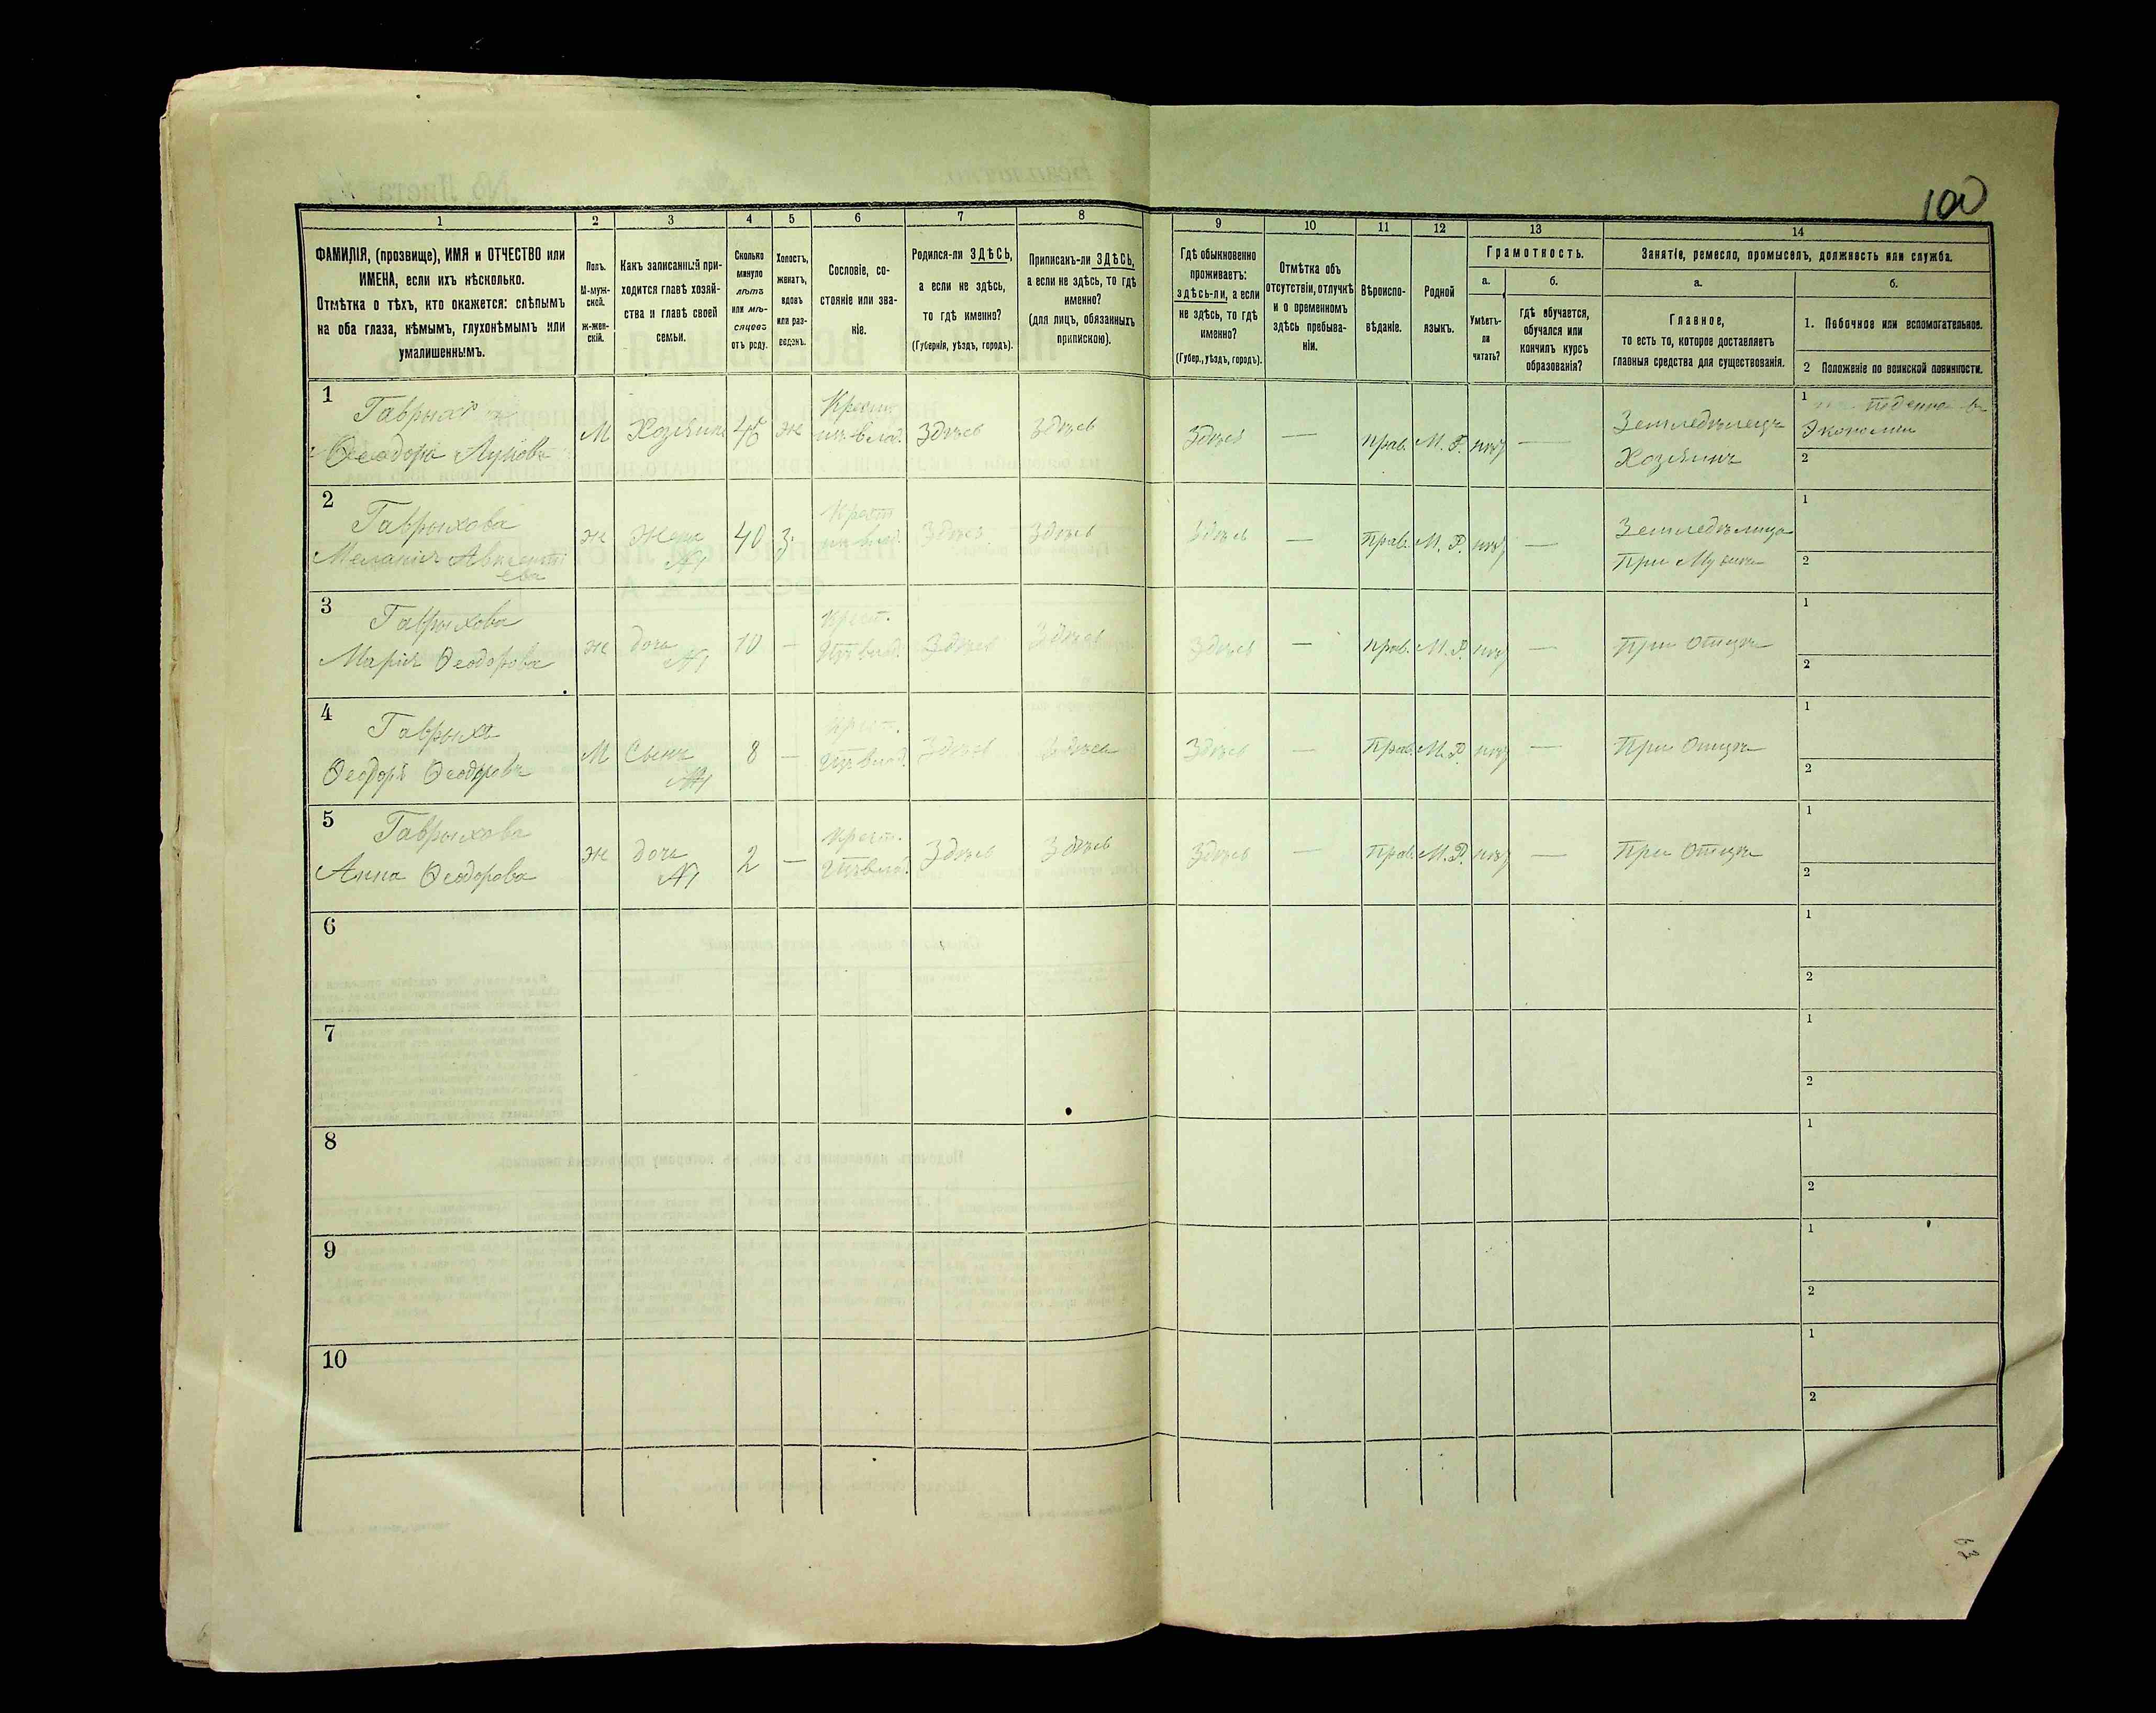 100
1
2
3
4
5
6
7
8
9
10
11
12
13
14
ФАМИЛІЯ, (прозвище), ИМЯ и ОТЧЕСТВО или
ИМЕНА, если ихъ нѣсколько.
Отмѣтка о тѣхъ, кто окажется: слѣпымъ
на оба глаза, нѣмымъ, глухонѣмымъ или
умалишеннымъ.
Полъ.
М-муж-
ской.
Ж-жен-
скій.
Какъ записанный при-
ходится главѣ хозяй-
ства и главѣ своей
семьи.
Сколько
минуло
лѣтъ
или мѣ-
сяцевъ
отъ роду.
Холостъ,
женатъ,
вдовъ
или раз-
веденъ.
Сословіе, со-
стояніе или зва-
ніе.
Родился-ли ЗДѢСЬ,
а если не здѣсь,
то гдѣ именно?
(Губернія, уѣздъ, городъ).
Приписанъ-ли ЗДѢСЬ,
а если не здѣсь, то гдѣ
именно?
(для лицъ, обязанныхъ
припискою).
Гдѣ обыкновенно
проживаетъ:
здѣсь-ли, а если
не здѣсь, то гдѣ
именно?
(Губер., уѣздъ, городъ).
Отмѣтка объ
отсутствіи, отлучкѣ
и о временномъ
здѣсь пребыва-
ніи.
Вѣроиспо-
вѣданіе.
Родной
языкъ.
Грамотность.
а.
Умѣетъ-
ли
читать?
б.
гдѣ обучается,
обучался или
кончилъ курсъ
образованія?
Занятіе, ремесло, промыселъ, должность или служба.
а.
Главное,
то есть то, которое доставляетъ
главныя средства для существованія.
б.
1. Побочное или вспомогательное.
2 Положеніе по воинской повинности.
1
Ѳеодоръ
М
Хозяинъ
46
ж
Крест.
Здѣсь
Здѣсь
Здѣсь
—
прав.
М. Р.
нѣт
—
Земледѣлецъ
Хозяинъ
1
Экономіи
2
2
Гаврихова
Меланія
ж
Жена
№1
40
З.
Крест
Здѣсь
Здѣсь
Здѣсь
—
Прав.
М. Р.
нѣт
—
При Мужѣ
1
2
3
Гаврихова
Марія Ѳеодорова
ж
дочь
№1
10
—
Крест.
Здѣсь
Здѣсь
Здѣсь
—
прав.
М. Р.
нѣт
—
При Отцѣ
1
2
4
Гаврихъ
Ѳеодоръ Ѳеодоровъ
М
Сынъ
№1
8
—
Крест.
Здѣсь
Здѣсь
Здѣсь
—
Прав.
М. Р.
нѣт
—
При Отцѣ
1
2
5
Гаврихова
Анна Ѳеодорова
ж
дочь
№1
2
—
Крест.
Здѣсь
Здѣсь
Здѣсь
—
Прав.
М. Р.
нѣт
—
При Отцѣ
1
2
6
1
2
7
1
2
8
1
2
9
1
2
10
1
2